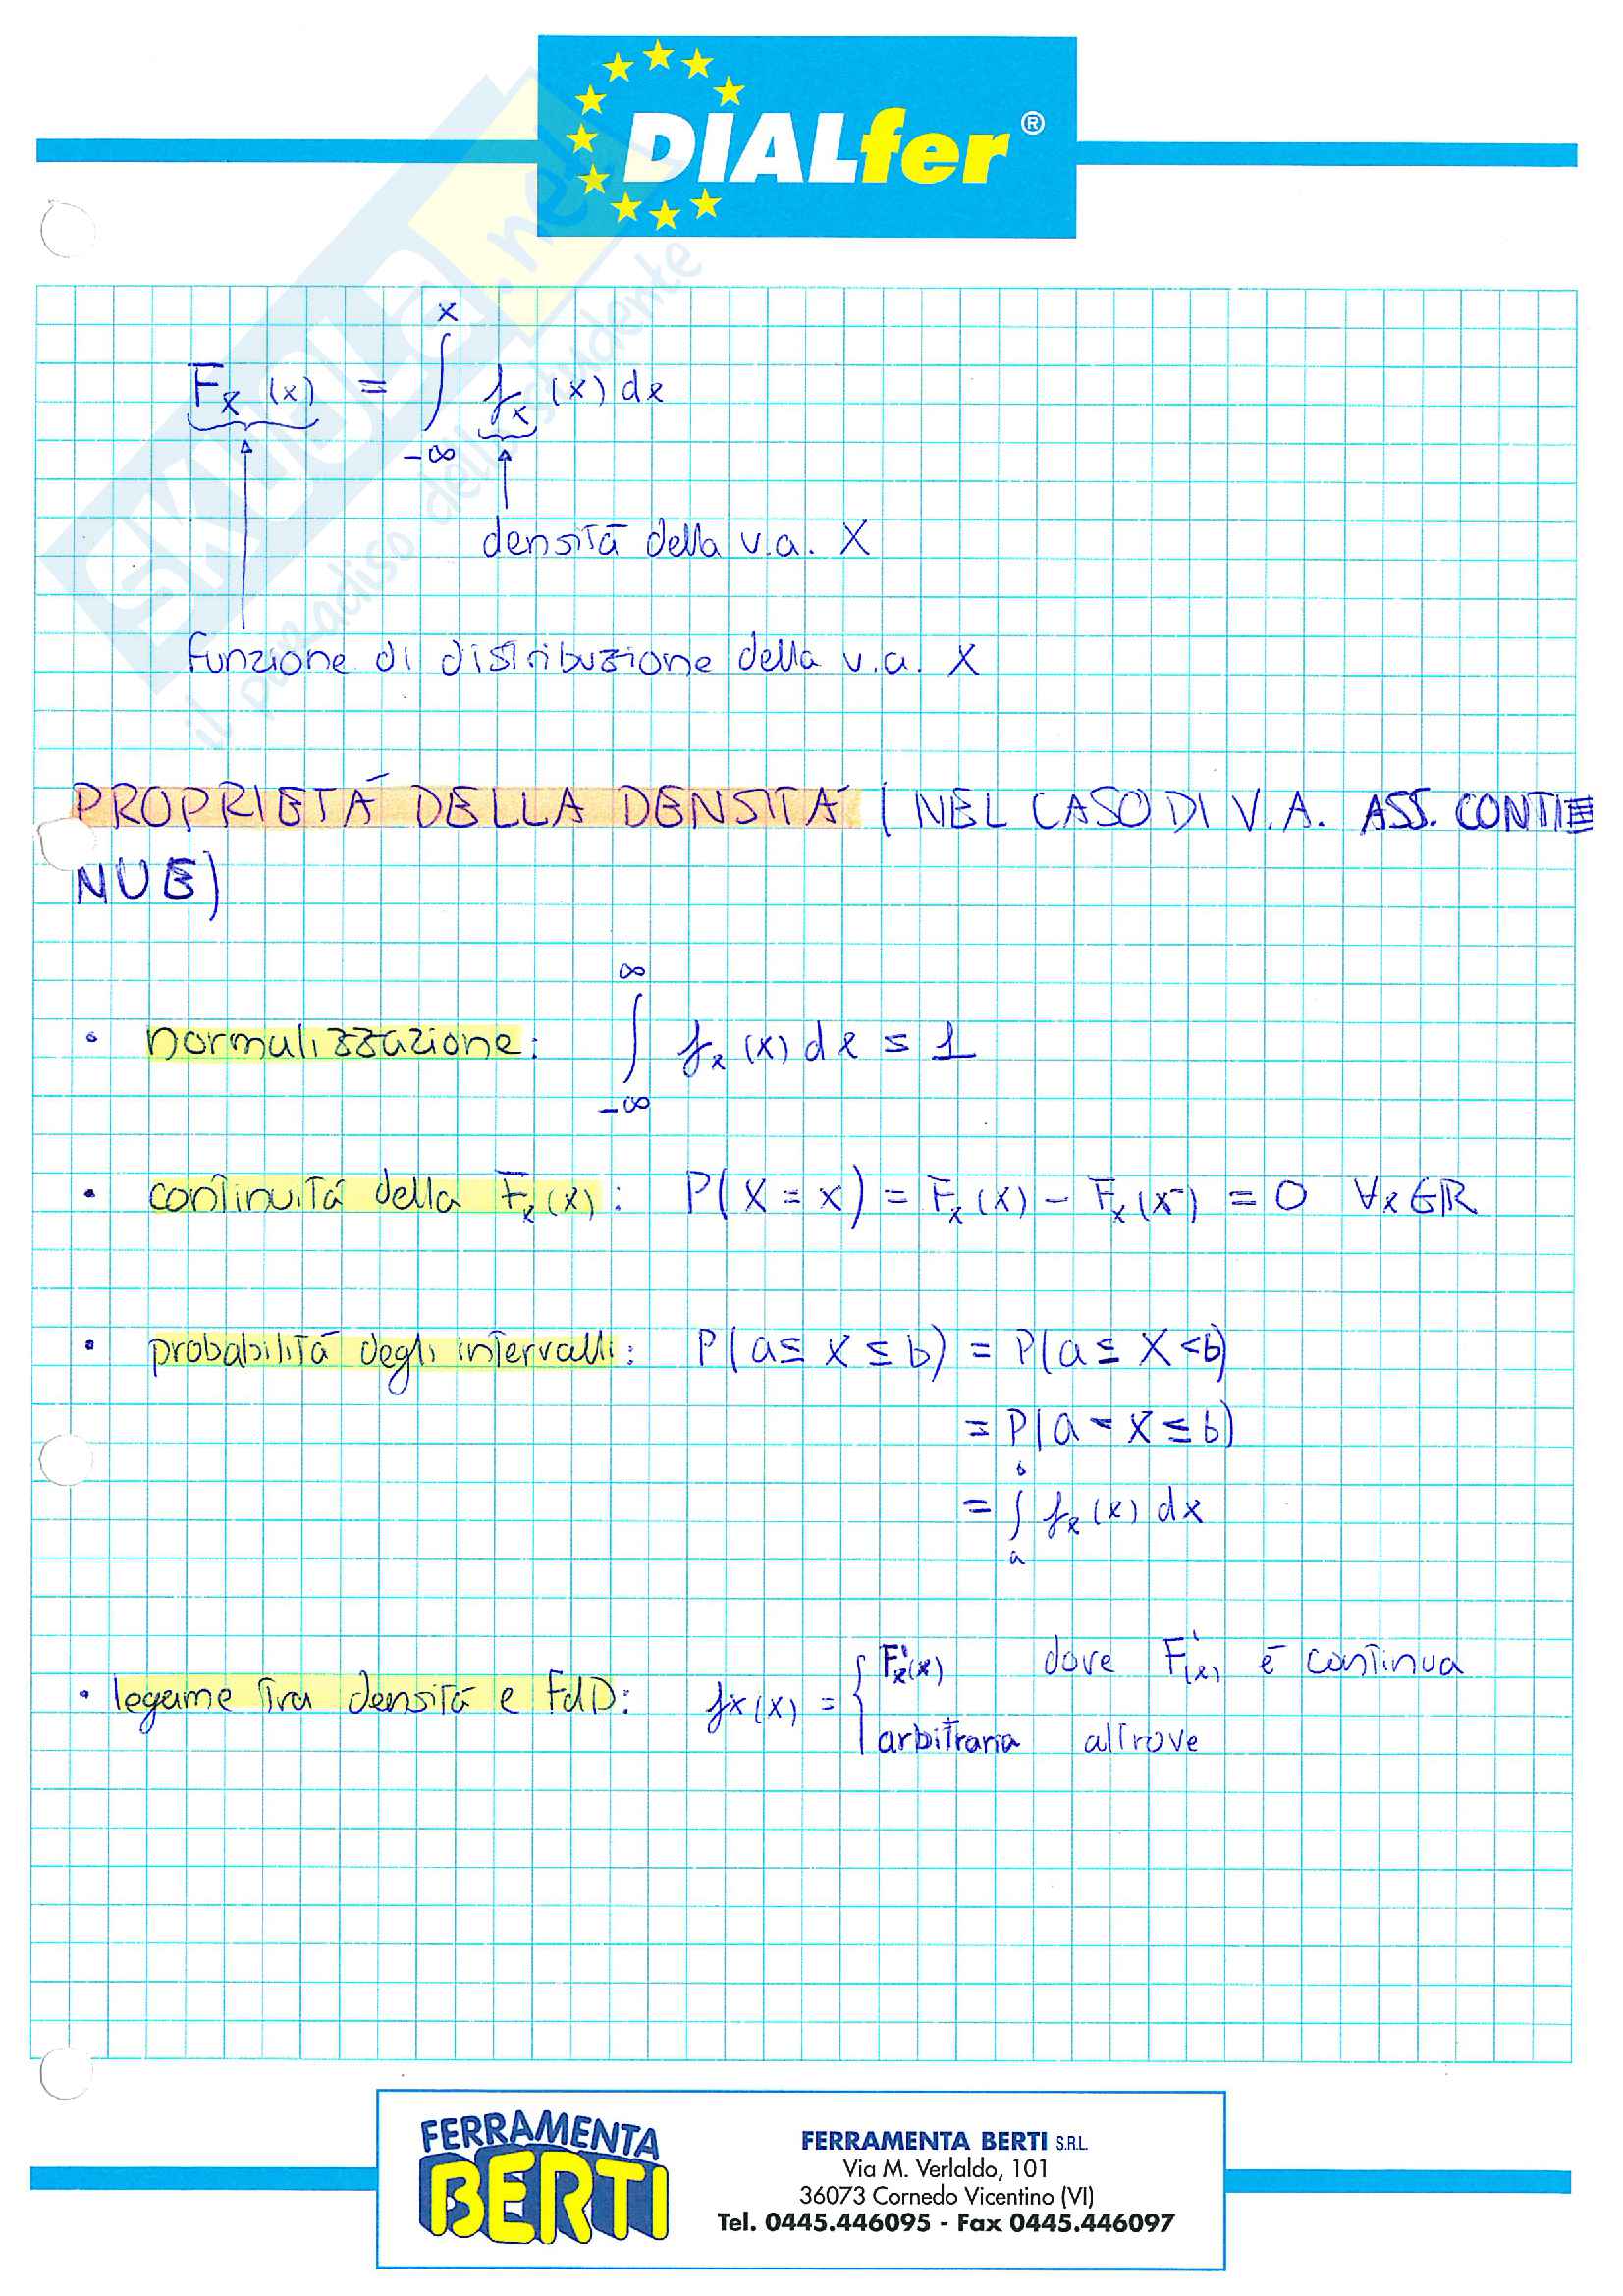 DIALfer®
SKUOLA.net
il paradiso dello studente
x
F_X (x) = ∫ f_x (x) dx
-∞
densità della v.a. X
funzione di distribuzione della v.a. X
PROPRIETÀ DELLA DENSITÀ (NEL CASO DI V.A. ASS. CONTI
NUE)
∞
• normalizzazione: ∫ f_x (x) dx = 1
-∞
• continuità della F_x(x): P(X = x) = F_x(x) - F_x(x⁻) = 0 ∀x∈ℝ
• probabilità degli intervalli: P(a ≤ X ≤ b) = P(a ≤ X < b)
= P(a < X ≤ b)
b
= ∫ f_x(x) dx
a
F'_x(x) dove F'(x) è continua
• legame tra densità e FdD: fx(x) = {
arbitraria altrove
FERRAMENTA
BERTI
FERRAMENTA BERTI S.R.L.
Via M. Verlaldo, 101
36073 Cornedo Vicentino (VI)
Tel. 0445.446095 - Fax 0445.446097